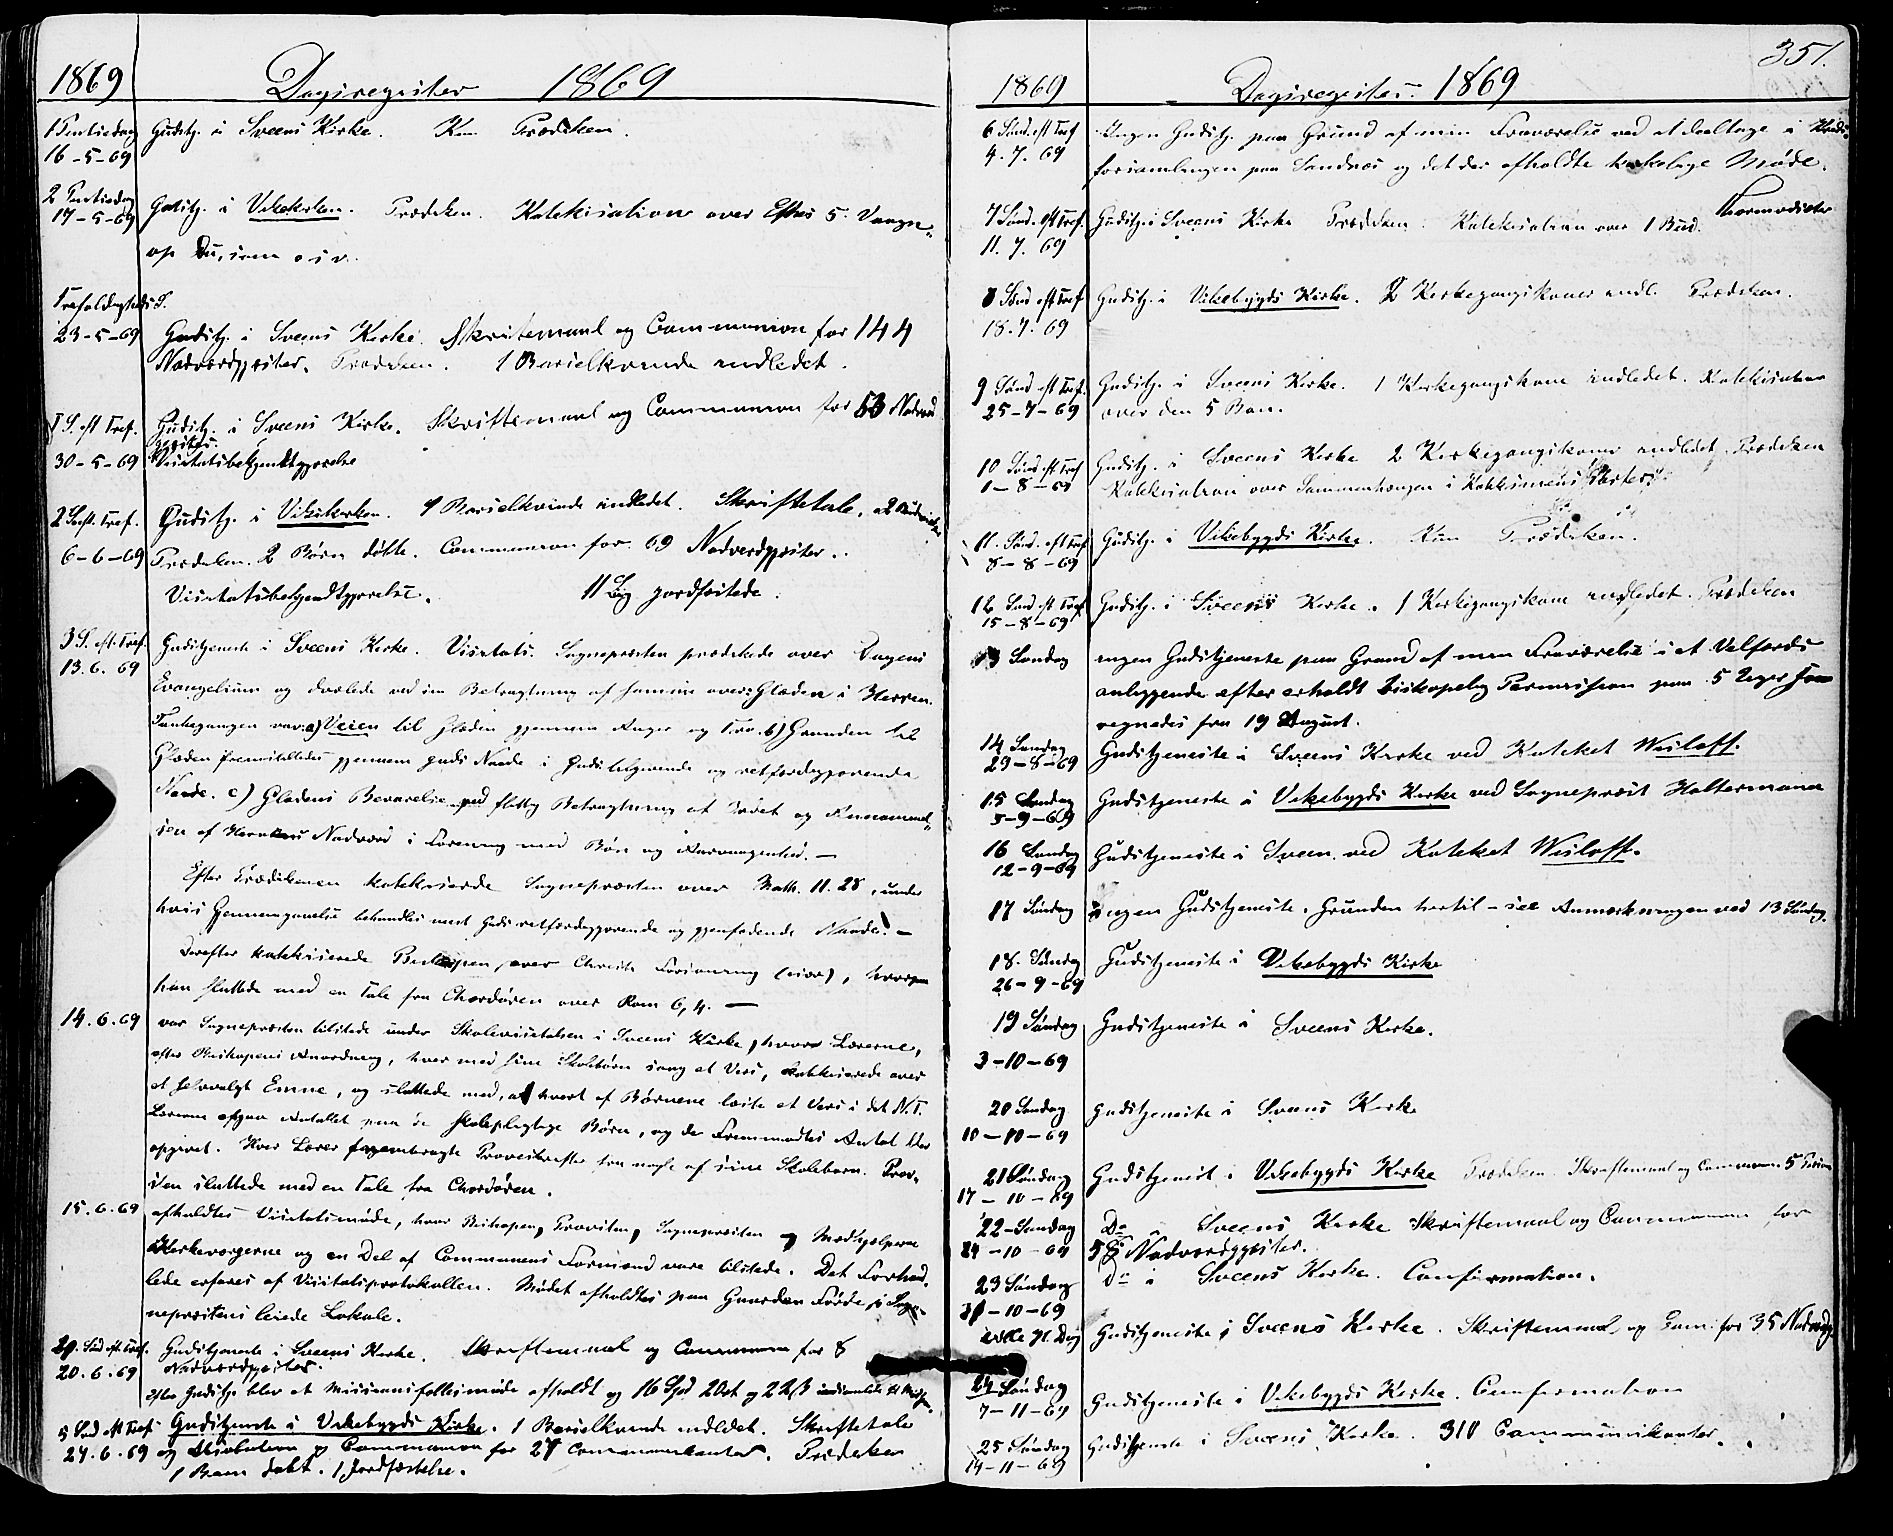 1869 Dagsregister 1869
1 Pintsedag Gudstj. i Sveens Kirke. Kun Prædiken.
16-5-69
2 Pintsedag
17-5-69 Gudstj. i Vikekirken. Prædiken. Katekisation over Efhes 5. Vaagn
op Du, som o.s.v.
Trefoldigheds S.
23-5-69 Gudstj. i Sveens Kirke. Skriftemaal og Communion for 144
Nadverdgjester. Prædiken. 1 Barselkvinde indledet.
1 S. eft Tref. Gudstj. i Sveens Kirke. Skriftemaal og Communion for 53 Nadverd
gjester.
30-5-69 Visitatsbekjendtgjørelse
2 S. eft. Tref. Gudstj. i Vikekirken. 1 Barselkvinde indledet. Skriftetale.
6-6-69 Prædiken. 2 Børn døbte. Communion for 69 Nadverdgjester.
Visitatsbekjendtgjørelse. 11 Lig jordfæstede.
3 S. eft. Tref. Gudstjeneste i Sveens Kirke. Visitats. Sognepræsten prædikede over Dagens
13.6.69 Evangelium og dvælede ved sin Betragtning af samme over: Glæden i Herren.
Tankegangen var: a) Veien til Glæden gjennem Anger og Tro. b) Grunden til
Glæden fremstilledes gjennem Guds Naade i Guds tilgivende og retfærdiggjørende
Naade. c) Glædens Bevarelse ved flittig Betragtning af Ordet og Annammel
sen af Herrens Nadverd i Forening med Bøn og Aarvaagenhed. —
Efter Prædikenen katekiserede Sognepræsten over Math. 11.28, under
hvis Gjennemgaaelse behandles mest Guds retfærdiggjørende og gjenfødende Naade. —
Derefter katekiserede Biskopen over Christi Forsoning, hvorpaa
han sluttede med en Tale fra Chordøren over Rom 6,4. —
14.6.69 var Sognepræsten tilstede under Skolevisitatsen i Sveens Kirke, hvor Lærerne,
efter Biskopens Anordning, hver med sine Skolebørn sang et Vers, katekiserede over
et selvvalgt Emne, og sluttede med, at hvert af Børnene læste et Vers i det N.T.
Lærerne opgav Antallet paa de skolepligtige Børn, og de Fremmødtes Antal blev
opgivet. Hver Lærer frembragte Prøveskrifter fra nogle af sine Skolebørn. Prov-
sten sluttede med en Tale fra Chordøren.
15.6.69 afholdtes Visitatsmøde, hvor Biskopen, Provsten, Sognepræsten og Medhjælperne
Kirkevergerne og en Del af Communens Formænd vare tilstede. Det Forhand
lede erfares af Visitatsprotokollen. Mødet afholdtes paa Gaarden Førde, i Sog
nepræstens leiede Lokale.
4 Sønd. eft. Tref. Gudstjeneste i Sveens Kirke. Skriftemaal og Communion for 8
20.6.69 Nadverdgjester.
efter Gudstj. blev et Missionsfællesmøde afholdt og 16 Spd 2 Ort og 22 ß
5 Sønd eft Tref Gudstjeneste i Vikebygds Kirke. 1 Barselkvinde indledet. Skriftetale
27.6.69 og Absolution og Communion for 27 Communikanter. Prædiken
1 Barn døbt. 1 Jordfæstelse.
351.
1869 Dagsregister 1869
6 Sønd. eft Tref Ingen Gudstj. paa Grund af min Fraværelse ved at deeltage i
4.7.69 forsamlingen paa Sandnes og det der afholdte kirkelige Møde.
7 Sønd. eft Tref. Gudstj. i Sveens Kirke Prædiken. Katekisation over 1 Bud.
11.7.69
8 Sønd eft Tref Gudstj. i Vikebygds Kirke. 2 Kirkegangskoner indl. Prædiken.
18.7.69
9 Sønd eft Tref. Gudstj. i Sveens Kirke. 1 Kirkegangskone indledet. Katekisation
25-7-69 over den 5 Bøn.
10 Sønd eft Tref Gudstj. i Sveens Kirke 2 Kirkegangskoner indledet. Prædiken
1-8-69 Katekisation over Sammenhængen i Katekismens Parter.
11. Sønd. eft Tref Gudstj. i Vikebygds Kirke. Kun Prædiken.
8-8-69
12 Sønd eft Tref Gudstj. i Sveens Kirke. 1 Kirkegangskone indledet. Prædiken
15-8-69
13 Søndag ingen Gudstjeneste paa Grund af min Fraværelse i et Velfærds
anliggende efter erholdt biskopelig Permission paa 5 Uger som
regnedes fra 19 August.
14 Søndag
29-8-69 Gudstjeneste i Sveens Kirke ved Kateket Wisløff.
15 Søndag Gudstjeneste i Vikebygds Kirke ved Sognepræst Haltermann
5-9-69
16 Søndag Gudstjeneste i Sveen ved Kateket Wisløff.
12-9-69
17 Søndag ingen Gudstjeneste. Grunden hertil - see Anmerkningen ved 13 Søndag.
18. Søndag Gudstjeneste i Vikebygds Kirke
26-9-69
19 Søndag Gudstjeneste i Sveens Kirke.
3-10-69
20 Søndag Gudstjeneste i Sveens Kirke
10-10-69
21 Søndag Gudstjenest i Vikebygds Kirke Prædiken. Skriftemaal og Communion 5
17-10-69
22-Søndag Do i Sveens Kirke Skriftemaal og Communion for
24-10-69 58 Nadverdgjester.
23 Søndag Do i Sveens Kirke. Confirmation.
31-10-69
Alle H. Dag Gudstjeneste i Sveens Kirke. Skriftemaal og Com. for 35 Nadverdgj.
24 Søndag
7-11-69 Gudstjeneste i Vikebygds Kirke. Confirmation
25 Søndag Gudstjeneste i Sveens Kirke. 310 Communikanter.
14-11-69